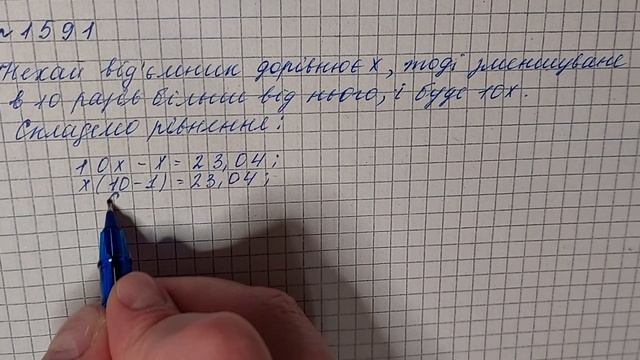 №1591
Нехай від'ємник дорівнює х, тоді зменшуване
в 10 разів більше від нього, і буде 10х.
Складемо рівняння:
10х - х = 23,04;
х(10-1) = 23,04;